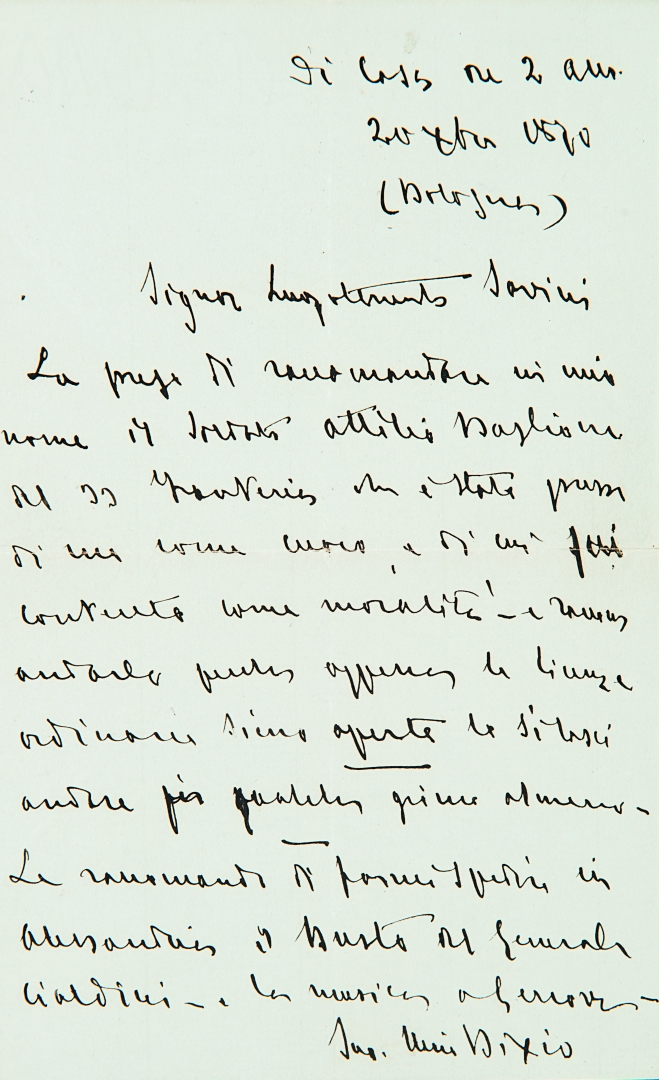 Di Casa ore 2 am.
20 xbre 1870
(Bologna)
Signor Luogotenente Savini
La prego di raccomandare in mio
nome il Soldato Attilio Baglione
del 33 Fanteria che è stato presso
di me come cuoco, e di cui fui
contento come moralità - e raccom
andarlo perché appena le licenze
ordinarie siano aperte lo si lasci
andare per qualche giorno almeno -
Le raccomando di farmi spedire in
Alessandria il Busto del Generale
Cialdini - e la musica a Genova -
Suo. Nino Bixio